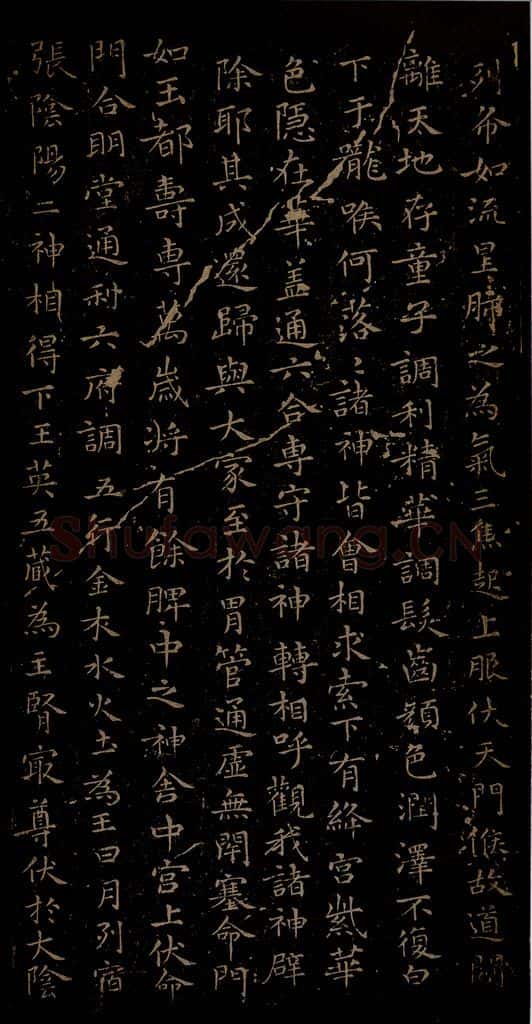 列布如流星肺之為氣三焦起上服伏天門候故道闚
離天地存童子調利精華調髮齒顏色潤澤不復白
下于嚨喉何落〻諸神皆會相求索下有絳宮紫華
色隱在華盖通六合專守諸神轉相呼觀我諸神辟
除耶其成還歸與大家至於胃管通虛無閉塞命門
如玉都壽專萬歲將有餘脾中之神舍中宮上伏命
門合明堂通利六府調五行金木水火土為王日月列宿
張陰陽二神相得下玉英五藏為主腎㝡尊伏於大陰
Shufawang.CN